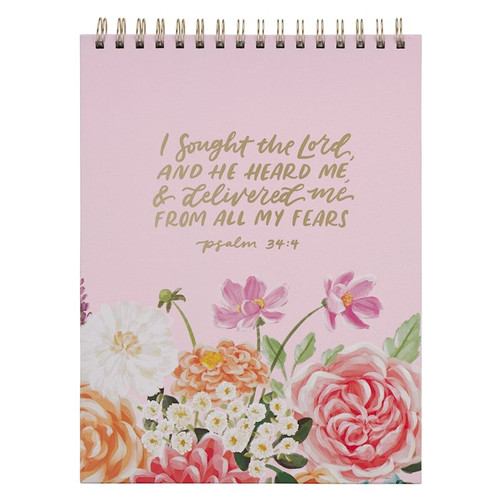 I sought the Lord,
AND HE HEARD ME,
& delivered me
FROM ALL MY FEARS
psalm 34:4